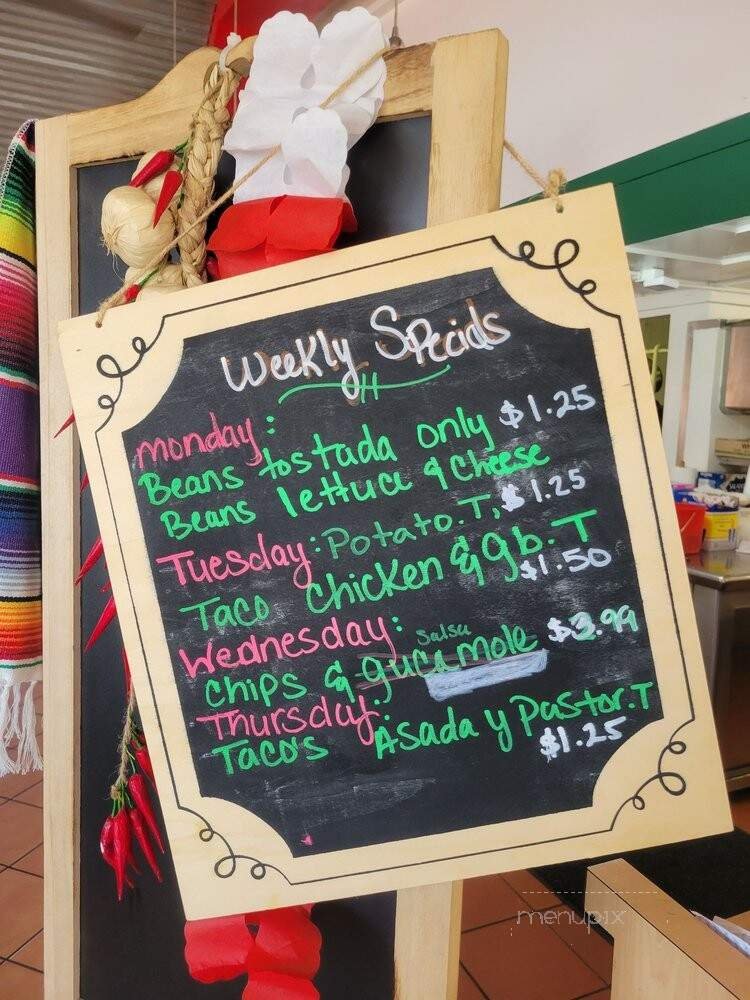 Weekly Specials
monday:
Beans tostada only $1.25
Beans lettuce & cheese
Tuesday: Potato.T, $1.25
Taco chicken & gb.T
$1.50
Wednesday:
Salsa
chips & gucamole $3.99
Thursday:
Taco's Asada y Pastor.T
$1.25
menupix